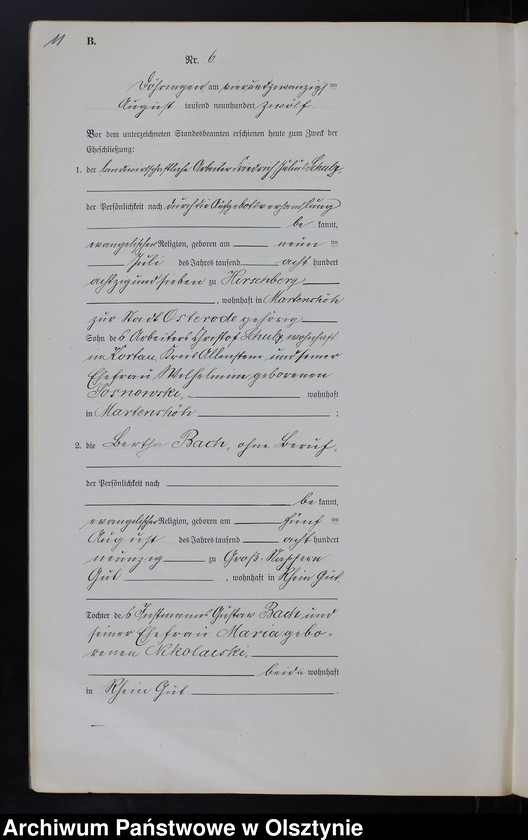 11
B.
Nr. 6
Döhringen am vierundzwanzigsten
August tausend neunhundert zwölf.
Vor dem unterzeichneten Standesbeamten erschienen heute zum Zweck der
Eheschließung:
1. der landwirtschaftliche Arbeiter Friedrich Julius Schulz,
der Persönlichkeit nach durch die Aufgebotsverhandlung
be kannt,
evangelischer Religion, geboren am neun ten
Juli des Jahres tausend acht hundert
achtzig und sieben zu Hirschberg
, wohnhaft in Martenshöh
zur Stadt Osterode gehörig
Sohn des Arbeiters Christof Schulz wohnhaft
in Kortau, Kreis Allenstein und seiner
Ehefrau, Wilhelmine, geborenen
Sosnowski, wohnhaft
in Martenshöh ;
2. die Bertha Bach, ohne Beruf,
der Persönlichkeit nach
be kannt,
evangelischer Religion, geboren am fünf ten
August des Jahres tausend acht hundert
neunzig zu Groß-Nappern
Gut , wohnhaft in Rhein Gut
Tochter des Instmanns Gustav Bach und
seiner Ehefrau Maria gebo-
renen Nikolaiski,
beide wohnhaft
in Rhein Gut .
Archiwum Państwowe w Olsztynie